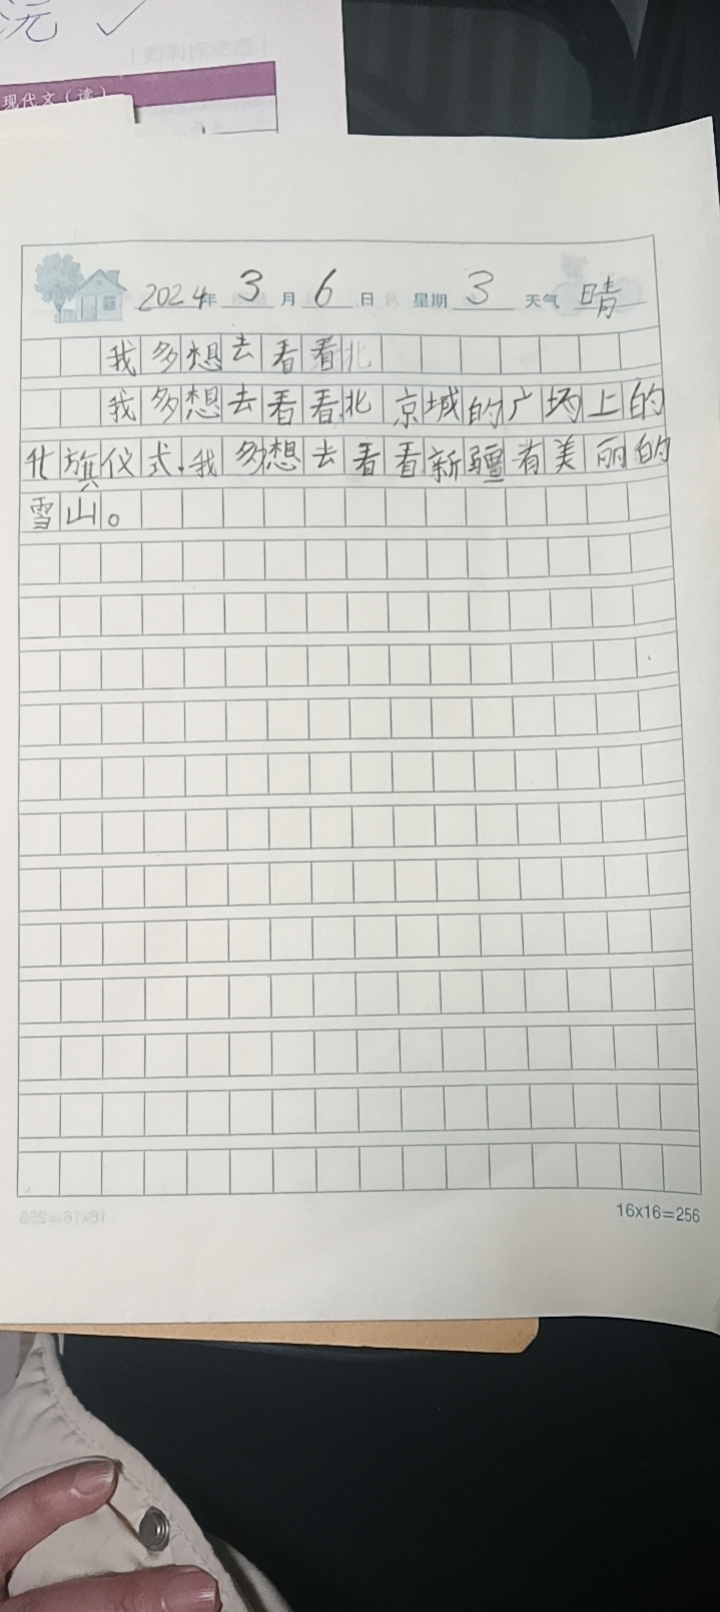 沅 ✓
现代文（读）
2024年 3 月 6 日 星期 3 天气 晴
我多想去看看北
我多想去看看北京城的广场上的
化旗仪式.我多想去看看新疆有美丽的
雪山。
16x16=256